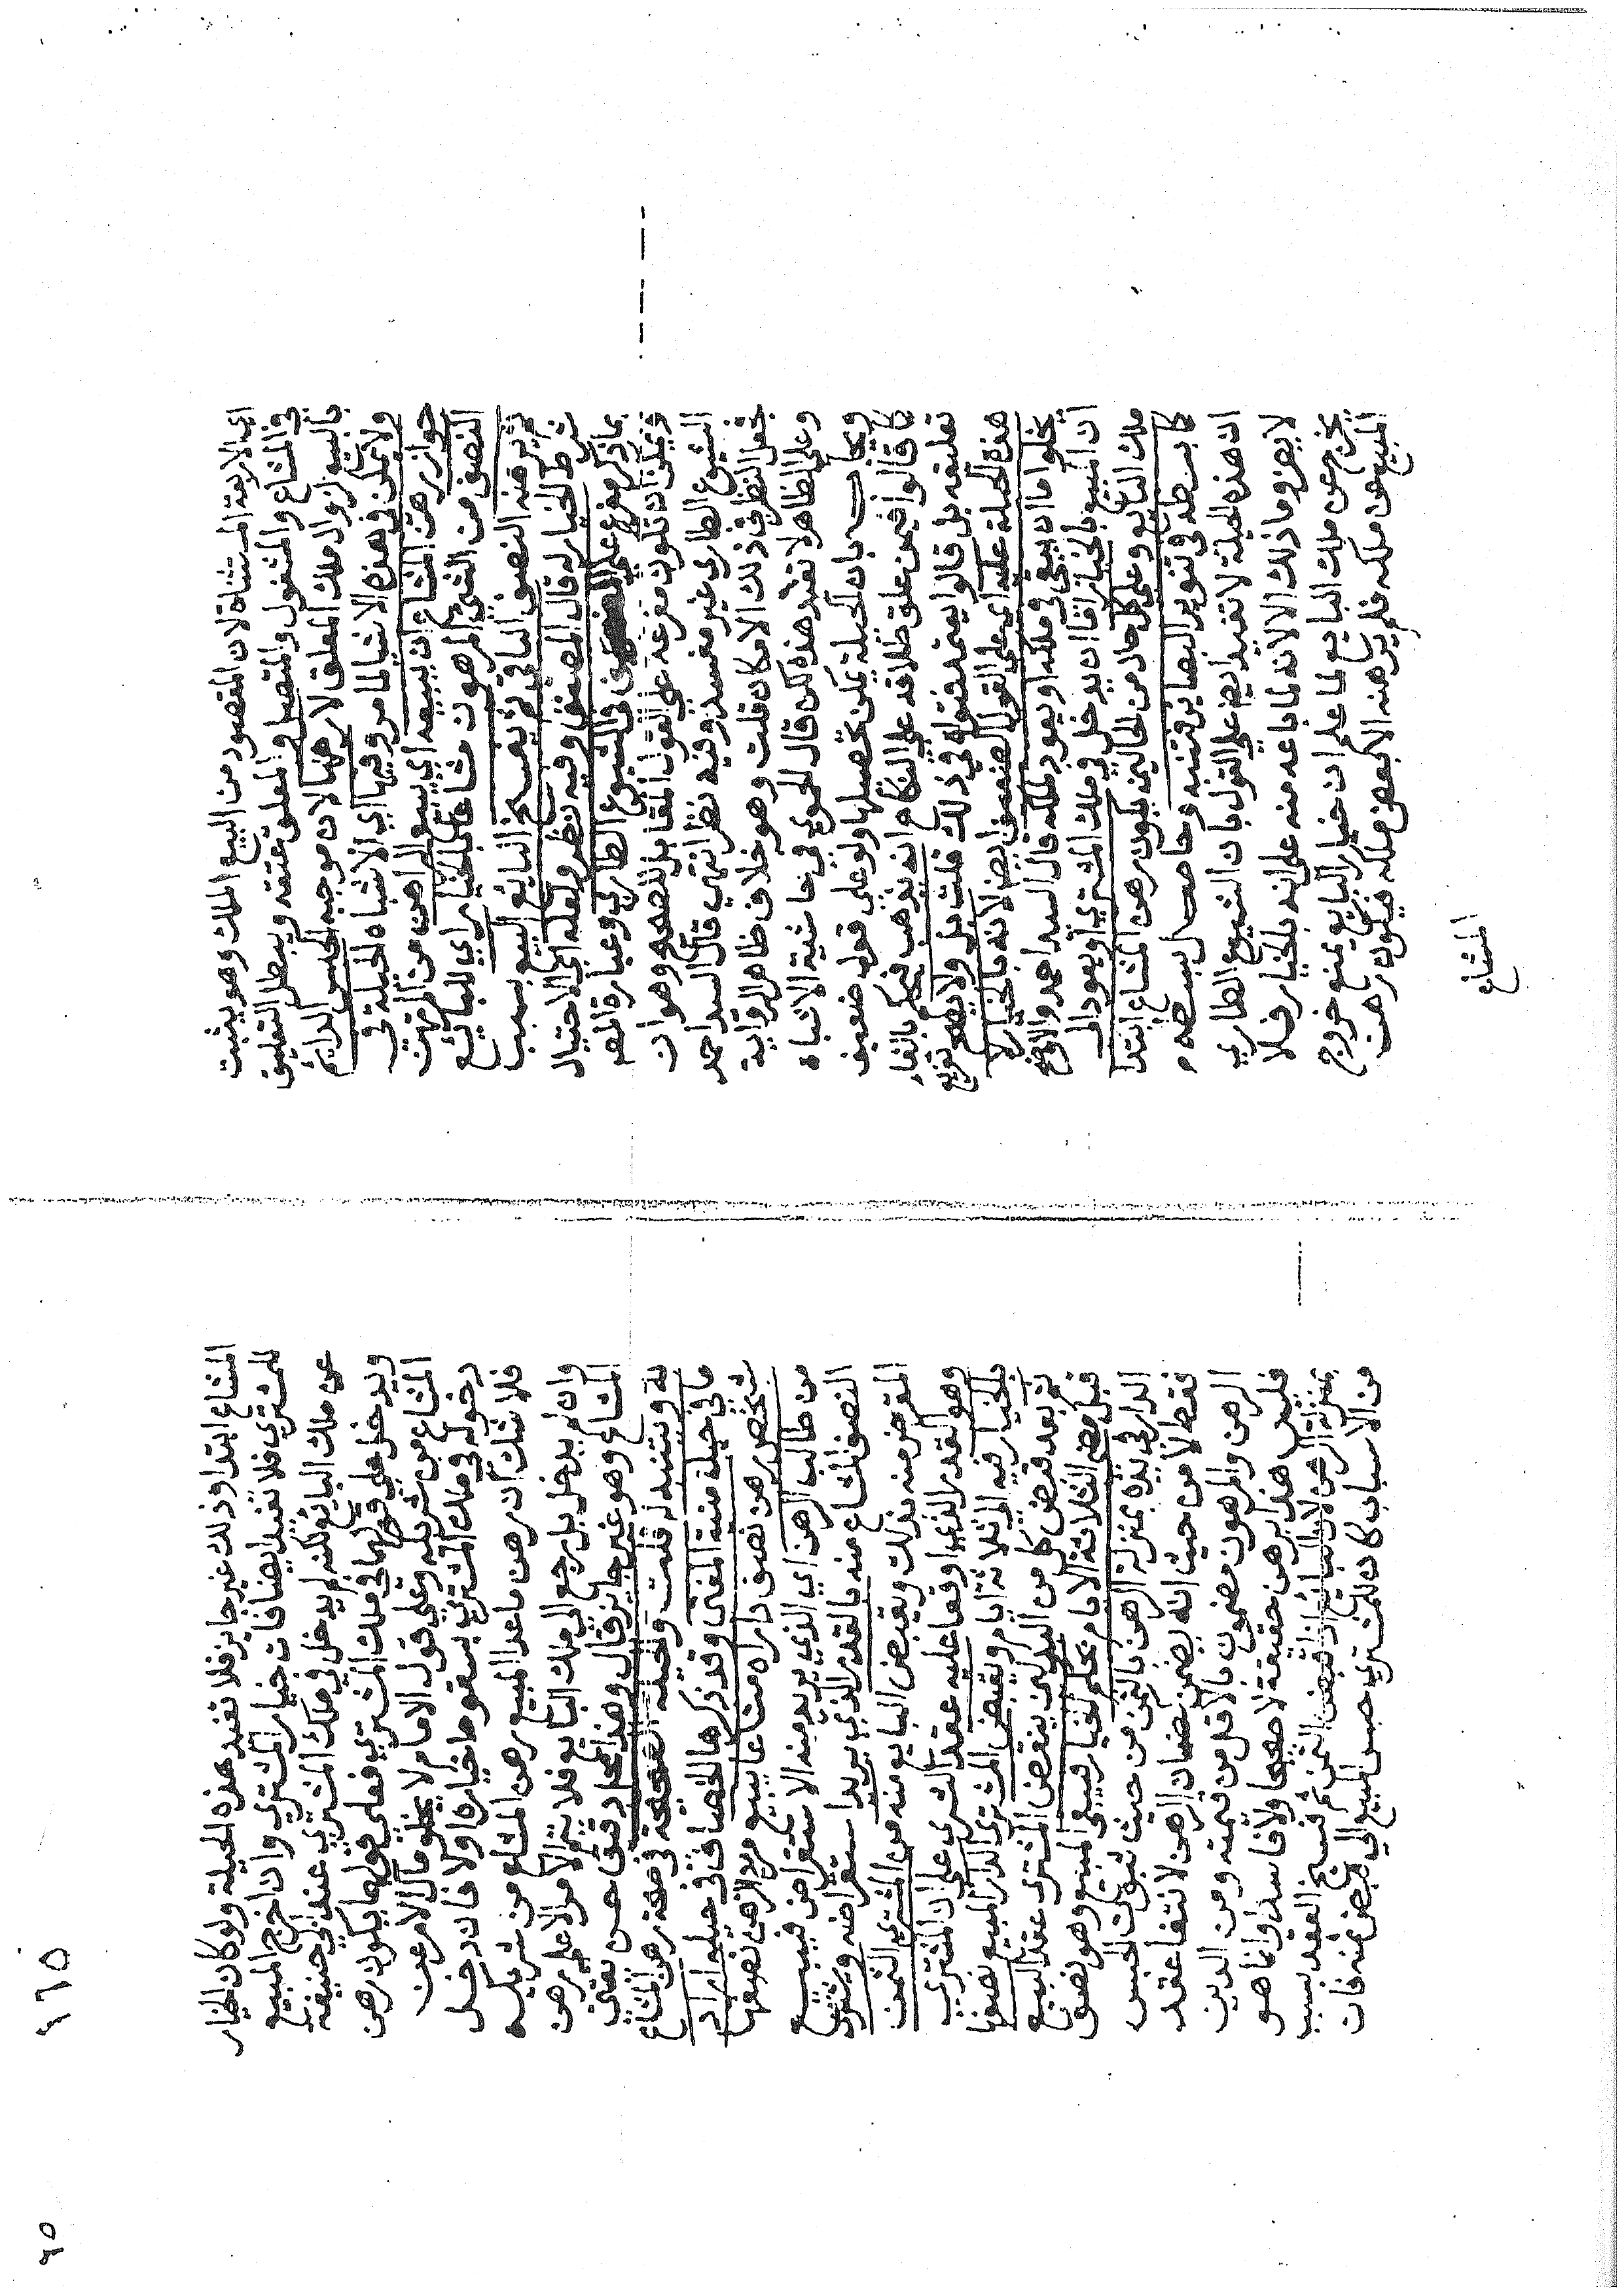 اي الاربعة المستثناة لان المقصود من البيع الملك وهو يثبت
في المشاع والمشغول والمتصل والمعلق عتقه ويبطل التعليق
بالبيع لزوال ملك المعلق لا رهنها لان موجبه الحبس الدايم
ولا يمكن في هذه الاشيا لما مر وفيها اي الاشباه الحيلة في
جواز رهن المشاع ان يبيعه اي يبيع الراهن من المرتهن
النصف من الشي المرهون مشاعا بالخيار اي للبائع
ثم يرهنه النصف الباقي ثم يفسخ البائع البيع بسبب
شرط الخيار له قال المصنف وفيه نظر ولعله اي الاحتيال
بما ذكر مفرع علي الضعيف في الشيوع الطاري وعبارة المص
ويمكن ان تكون مفرعة علي القول المقابل للصحيح وهو ان
الشيوع الطاري غير مفسد وفيه نظر انتهي قال السيد احمد
يحتمل النظر في ذلك الامكان قلت وهو خلاف ظاهر الرواية
وعلي الظاهر لا تفيد هذه لكن قال الحموي في حاشية الاشباه
ويجاب بان الحيلة يمكن تحصيلها ولو علي قول ضعيف
كما قالوا فيمن علق طلاقه علي النكاح انه يذهب فيحكم بالغاء
تعليقه بل قالوا يعتمد فتواه في ذلك قلت بل ولا يصح تفريع
هذه الحيلة عليه اي علي القول الضعيف ايضا لانه بالخيار لا
يخلوا اما ان يبقي في ملكه او يعود لملكه قال السيد احمد والاوضح
ان المبيع بالخيار اما ان يدخل في ملك المشتري او يعود الي
ملك البائع وعلي كل حال من الحالين يكون رهن المشاع ابتدا
كما بسطه في تنوير البصاير فتنبه وحاصل لبسطه
ان هذه الحيلة لا تفيد ايضا علي القول بان الشيوع الطاري
لا يضر وما ذلك الا لانه لما باعه منه علي انه بالخيار فلا
يخرج عن ملك البايع لما علم ان خيار البايع يمنع خروج
المبيع عن ملكه فلم يرهنه الا بعض ملكه فيكون رهن
المشاع
١٦٥
المشاع ابتدا وذلك غير جايز فلا تفيد هذه الحيلة ولو كان الخيار
للمشتري فلا تفيد ايضا فان خيار المشتري وان اخرج المبيع
عن ملك البائع لكنه لم يدخل في ملك المشتري عند ابي حنيفة
ويدخل علي قولهما في ملك المشتري فعلي قولهما يكون رهن
المشاع من شريكه وعلي قول الامام لا يخلو مآل الامر عن
دخوله في ملك المشتري بسقوط خياره او لا فان دخل
فلا شك ان رهن ما عدا المبيع رهن المشاع من شريكه
وان لم يدخل بل رجع الي ملك البايع فلا يتم الامر الا علي رهن
المشاع وهو غير جايز قال وهذا محل دقيق حسن تفتي
به وتنتبه له قلت وحيلة الصحيحة في صحة رهن المشاع
ما في حيلة منية المفتي وقد ذكرها الخصاف في حيله اراد
شخص رهن نصف داراه مشاعا يبيع مريد الرهن نصفها
من طالب الرهن اي الذي يريد منه الاستقراض فيبيع
النصف المشاع منه بالقدر الذي يريد استقراضه ويشتري
المقرض منه بذلك ويقبض البايع منه من المشتري الثمن
وهو القدر الذي اوقعا عليه عقد الشري علي ان المشتري
بالخيار فيه الي ثلاثة ايام ويقبض المشتري الدار المبيع نصفها
ثم بعد قبض كل من البدلين ينقض المشتري عقد البيع
قبل مضي الثلاثة الايام بحكم الخيار فيبقي المبيع وهو نصف
الدار في يده بمنزلة الرهن بالثمن من حيث ثبوت الحبس
فقط لا من حيث انه يضمن ضمان الرهن لانتفا عقد
الرهن والمرهون مضمون بالاقل من قيمته ومن الدين
فليس هذا برهن حقيقة لا صحيحا ولا فاسدا وانما هو
بمنزلة الرهن لان البائع اذا قبض الثمن ثم فسخ العقد بسبب
من الاسباب كان للمشتري حبس المبيع الي قبض ثمنه فان
٦٥